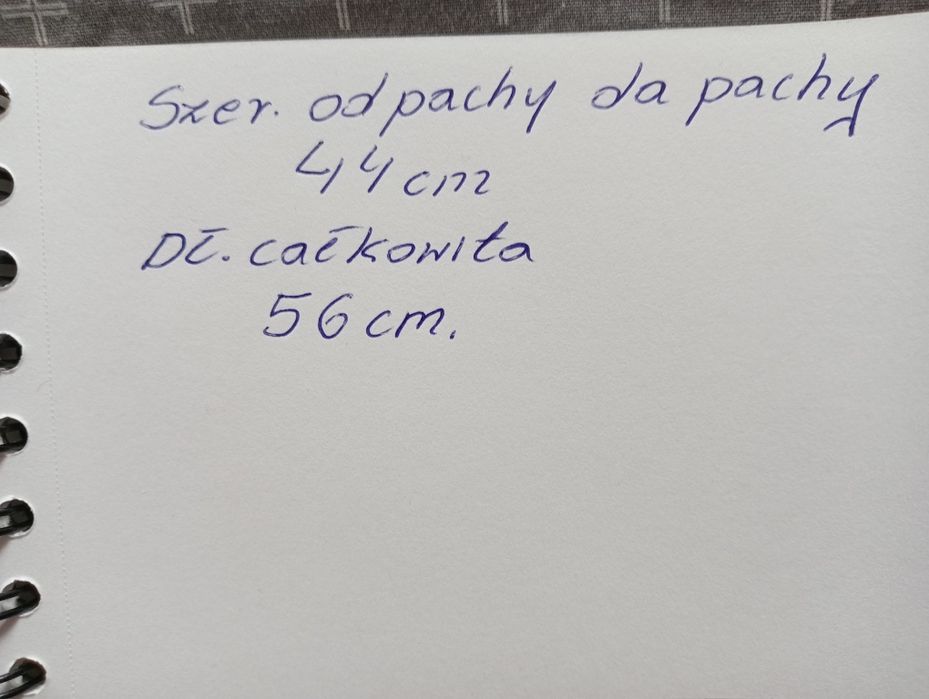 Szer. od pachy da pachy
44 cm
Dł. całkowita
56 cm.